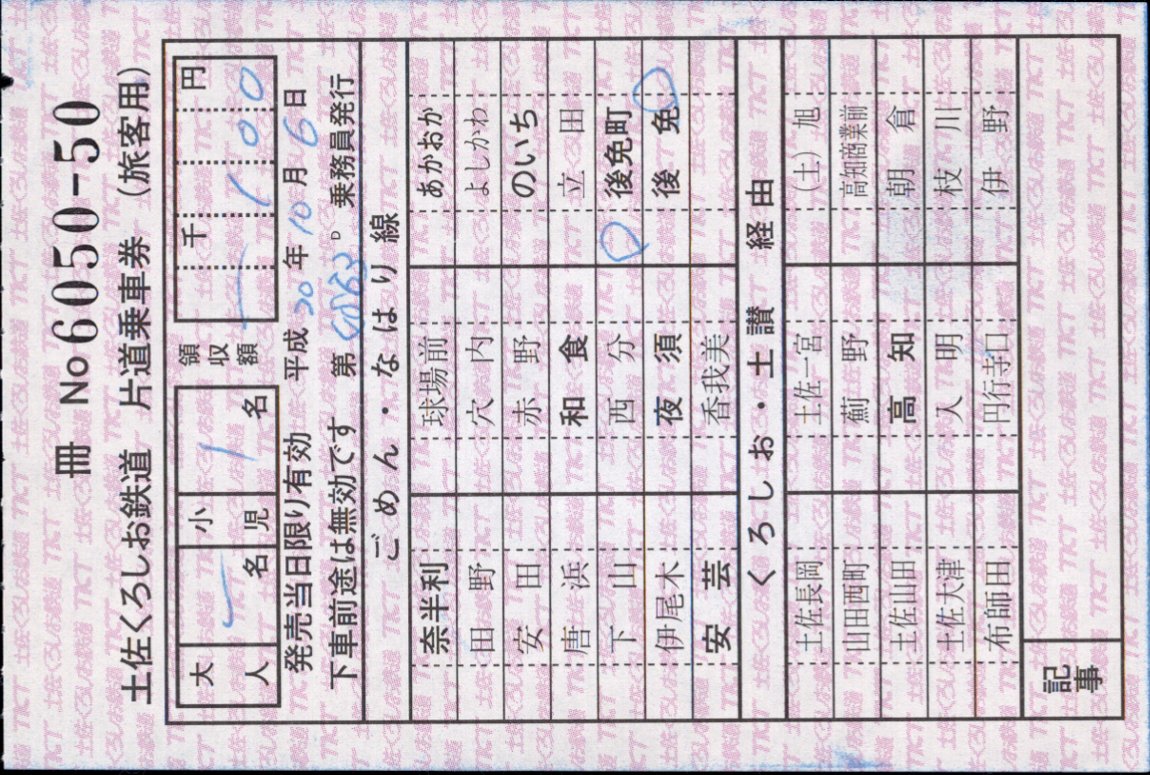 冊 No6050-50
土佐くろしお鉄道 片道乗車券 (旅客用)
大人 名 小児 1 名 領収額 千 円 100
発売当日限り有効 平成30年10月6日
下車前途は無効です 第 D 乗務員発行
ごめん・なはり線
奈半利 球場前 あかおか
田野 穴内 よしかわ
安田 赤野 のいち
唐浜 和食 立田
下山 西分 後免町
伊尾木 夜須 後免
安芸 香我美
くろしお・土讃 経由
土佐長岡 土佐一宮 (土)旭
山田西町 薊野 高知商業前
土佐山田 高知 朝倉
土佐大津 入明 枝川
布師田 円行寺口 伊野
記事
土佐くろしお鉄道 TKT